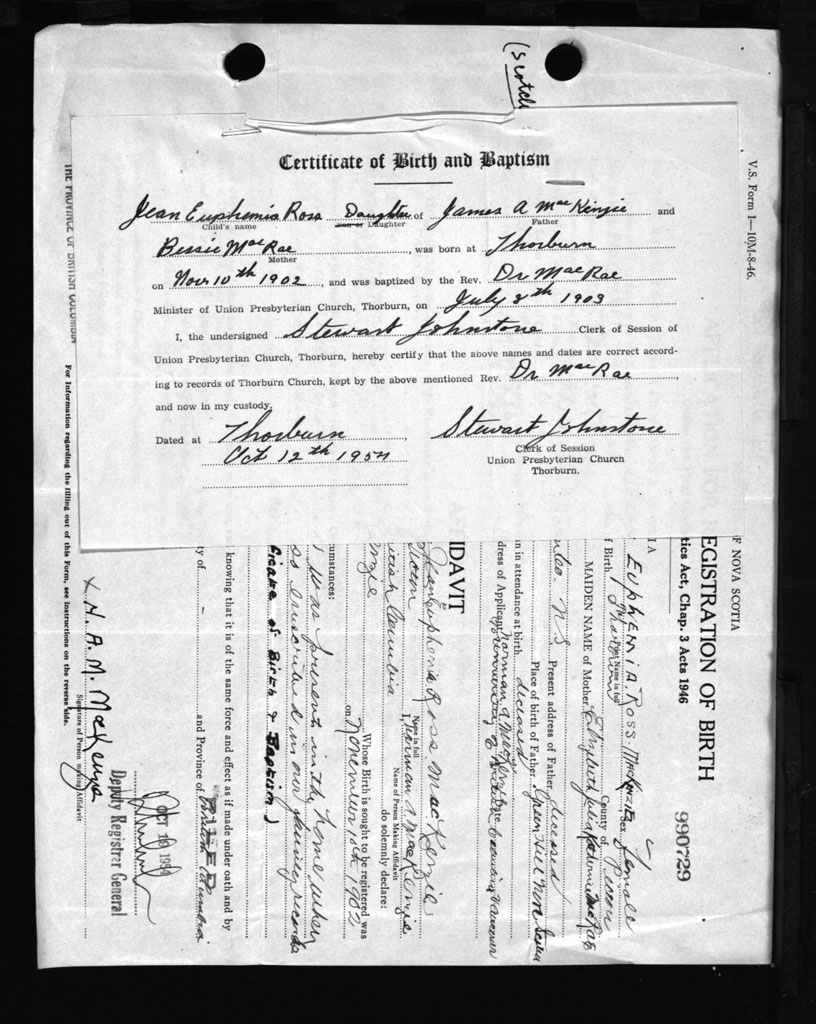 (Scotch
Certificate of Birth and Baptism
Jean Euphemia Ross Daughter of James A MacKenzie and
Child's name Son or Daughter Father
Bessie MacRae, was born at Thorburn
Mother
on Nov 10th 1902, and was baptized by the Rev. Dr MacRae
Minister of Union Presbyterian Church, Thorburn, on July 8th 1903
I, the undersigned Stewart Johnstone Clerk of Session of
Union Presbyterian Church, Thorburn, hereby certify that the above names and dates are correct accord-
ing to records of Thorburn Church, kept by the above mentioned Rev. Dr MacRae,
and now in my custody.
Dated at Thorburn, Stewart Johnstone
Oct 12th 1954 Clerk of Session
Union Presbyterian Church
Thorburn.
V.S. Form 1—10M-8-46.
F NOVA SCOTIA
EGISTRATION OF BIRTH
990729
tics Act, Chap. 3 Acts 1946
I A
EUPHEMIA ROSS MacKENZIE Sex Female
Print Name in full
f Birth Thorburn County of Pictou
MAIDEN NAME of Mother
N S Present address of Father deceased
Place of birth of Father Green Hill Nova Scotia
n in attendance at birth deceased
dress of Applicant University of British Columbia Vancouver
IDAVIT
Name in full
Name of Person Making Affidavit
Jean Euphemia Ross MacKenzie I, Norman A MacKenzie
do solemnly declare:
British Columbia
Whose Birth is sought to be registered was
on November 10th 1902
umstances:
I was present in the home when
as inscribed in our family records
ficate of Birth & Baptism)
knowing that it is of the same force and effect as if made under oath and by
ty of and Province of British Columbia
FILED
OCT 16 1954
Deputy Registrar General
x N. A. M. MacKenzie
Signature of Person making Affidavit
THE PROVINCE OF BRITISH COLUMBIA For Information regarding the filling out of this Form, see instructions on the reverse side.